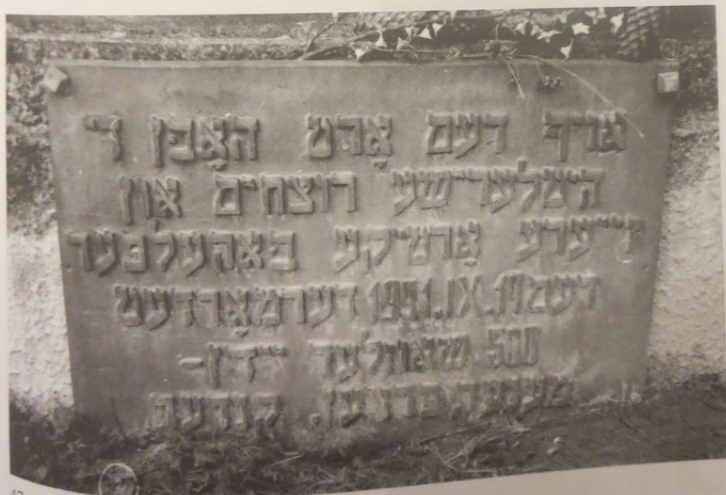 אויף דעם אָרט האָבן די
היטלערישע רוצחים און
זייערע אָרטיקע באַהעלפער
דעם 1941.IX.19 דערמאָרדעט
500 שאַוולער יידן-
מענער, פרויען, קינדער